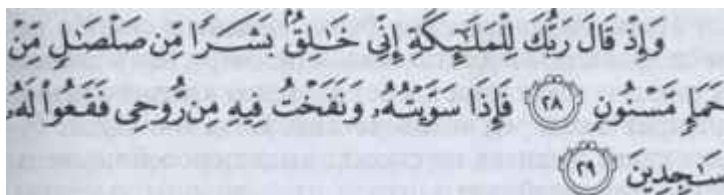 وَإِذْ قَالَ رَبُّكَ لِلْمَلَٰٓئِكَةِ إِنِّى خَٰلِقٌۢ بَشَرًا مِّن صَلْصَٰلٍ مِّنْ
حَمَإٍ مَّسْنُونٍ ﴿٢٨﴾ فَإِذَا سَوَّيْتُهُۥ وَنَفَخْتُ فِيهِ مِن رُّوحِى فَقَعُوا۟ لَهُۥ
سَٰجِدِينَ ﴿٢٩﴾